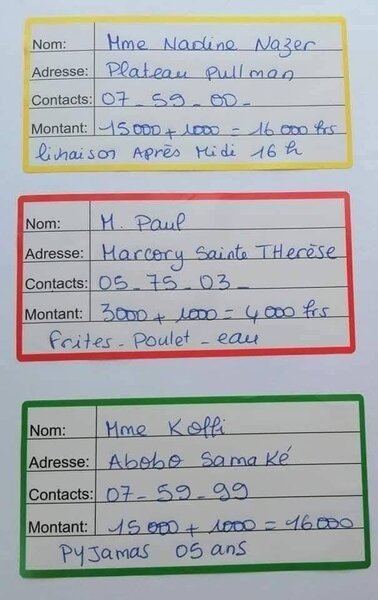 Nom: Mme Nadine Nazer
Adresse: Plateau Pullman
Contacts: 07-59-00-
Montant: 15000 + 1000 = 16 000 frs
livraison Après Midi 16 h
Nom: M. Paul
Adresse: Marcory Sainte THerèse
Contacts: 05-75-03-
Montant: 3000 + 1000 = 4 000 frs
frites-Poulet-eau
Nom: Mme Koffi
Adresse: Abobo Samaké
Contacts: 07-59-99
Montant: 15 000 + 1000 = 16000
PyJamas 05 ans